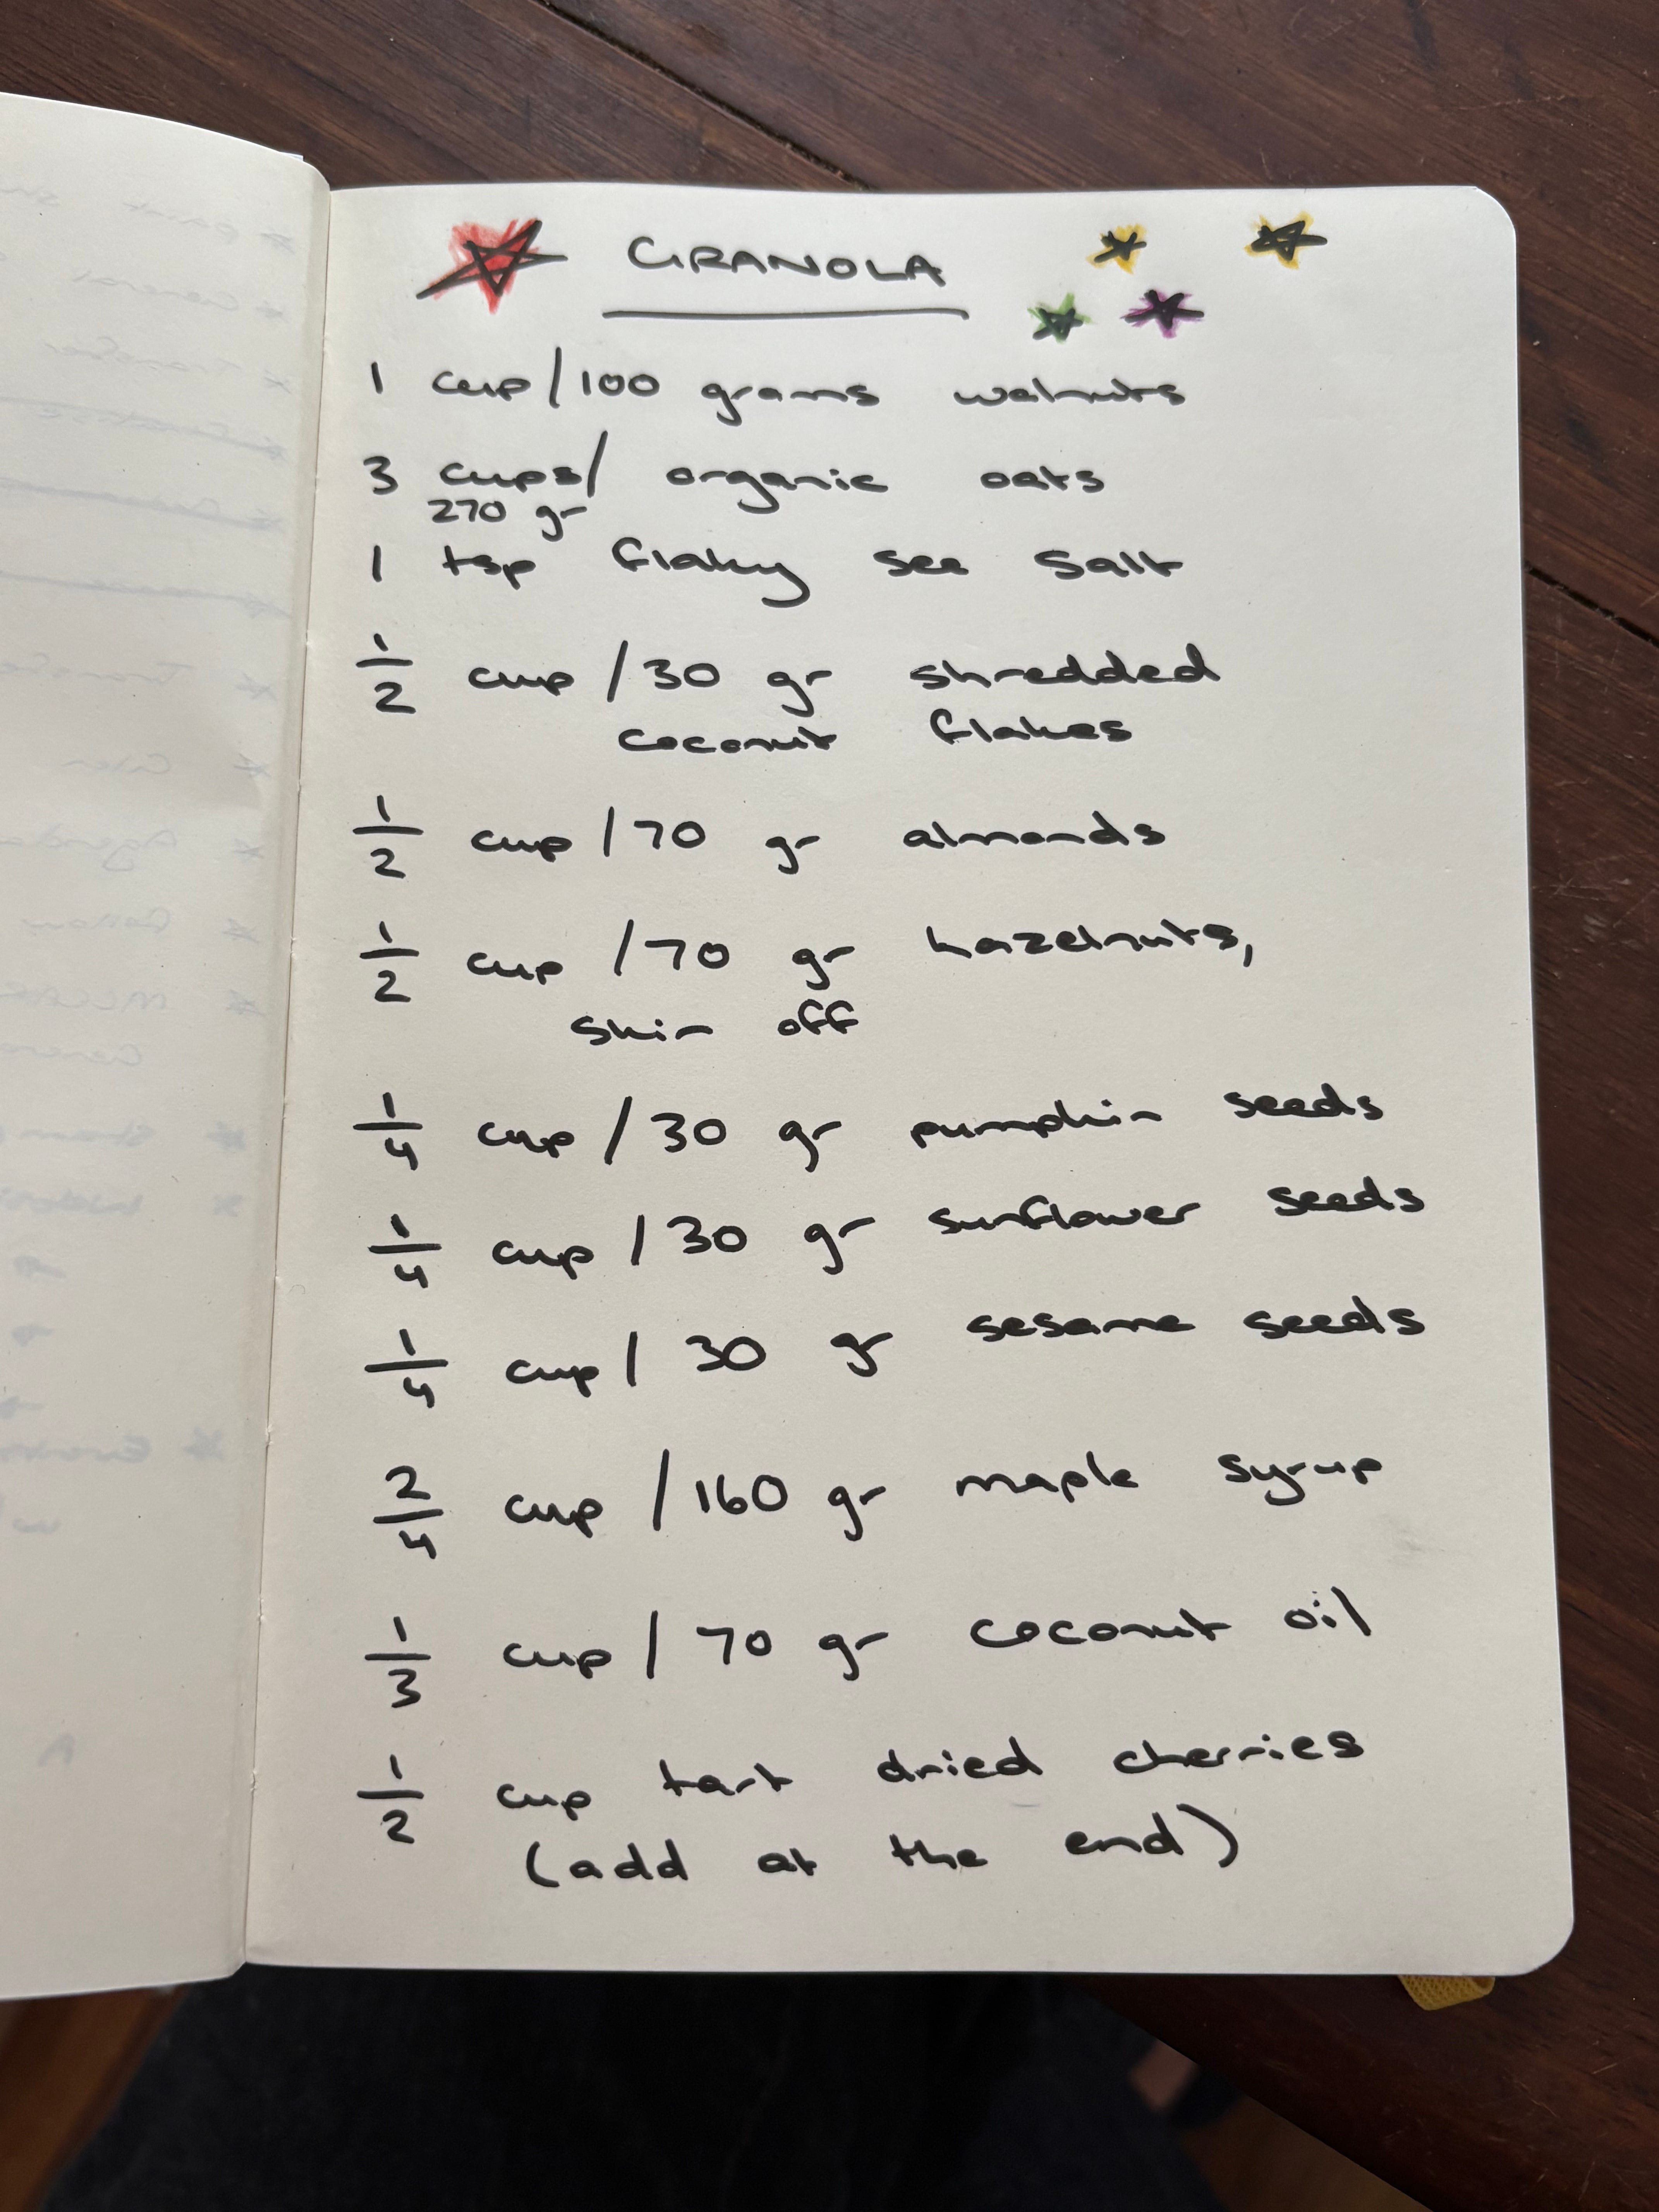 GRANOLA
1 cup/100 grams walnuts
3 cups/ organic oats
270 gr
1 tsp flaky sea salt
1/2 cup /30 gr shredded
coconut flakes
1/2 cup /70 gr almonds
1/2 cup /70 gr hazelnuts,
skin off
1/4 cup /30 gr pumpkin seeds
1/4 cup /30 gr sunflower seeds
1/4 cup / 30 gr sesame seeds
2/4 cup /160 gr maple syrup
1/3 cup / 70 gr coconut oil
1/2 cup tart dried cherries
(add at the end)